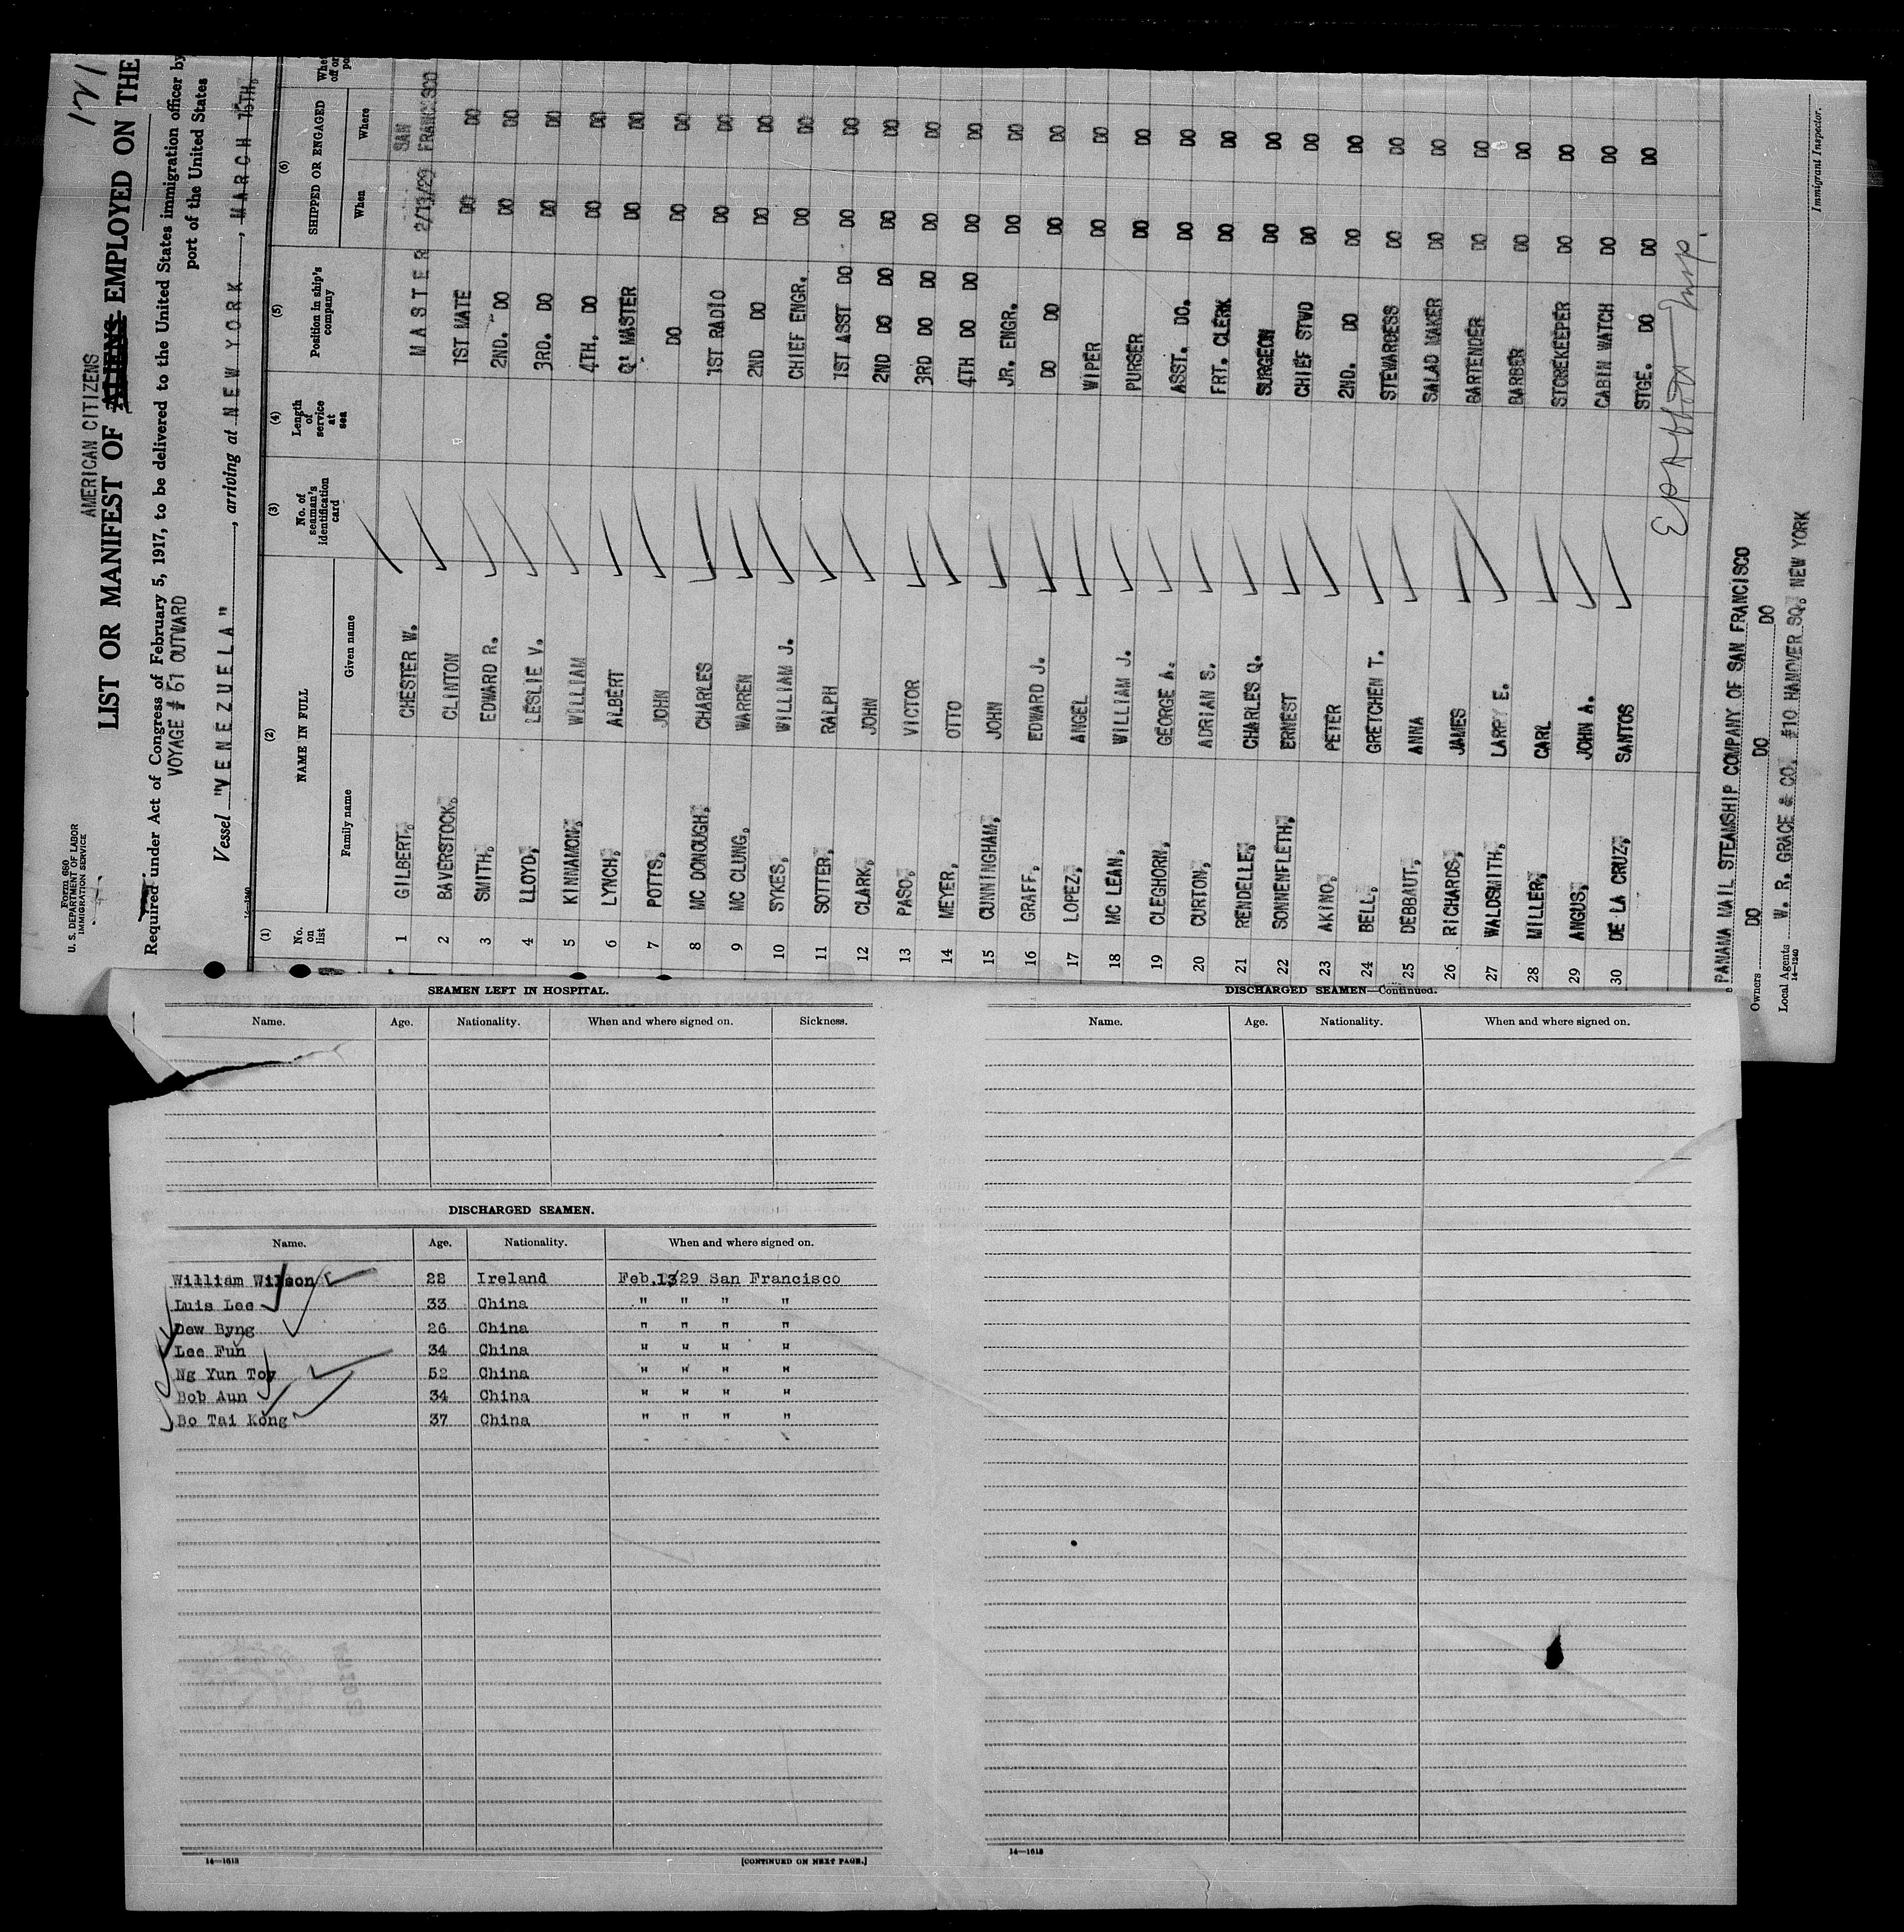 121
Form 680
U. S. DEPARTMENT OF LABOR
IMMIGRATION SERVICE
AMERICAN CITIZENS
LIST OR MANIFEST OF ALIENS EMPLOYED ON THE
Required under Act of Congress of February 5, 1917, to be delivered to the United States immigration officer by
port of the United States
VOYAGE # 61 OUTWARD
Vessel "VENEZUELA", arriving at NEW YORK, MARCH 15TH,
14—1240
(1) (2) (3) (4) (5) (6)
No. on list NAME IN FULL No. of seaman's identification card Length of service at sea Position in ship's company SHIPPED OR ENGAGED
Family name Given name When Where
1 GILBERT, CHESTER W. MASTER 2/13/29 SAN FRANCISCO
2 BAVERSTOCK, CLINTON 1ST MATE DO DO
3 SMITH, EDWARD R. 2ND. DO DO DO
4 LLOYD, LESLIE V. 3RD. DO DO DO
5 KINNAMON, WILLIAM 4TH. DO DO DO
6 LYNCH, ALBERT Q' MASTER DO DO
7 POTTS, JOHN DO DO DO
8 MC DONOUGH, CHARLES 1ST RADIO DO DO
9 MC CLUNG, WARREN 2ND DO DO DO
10 SYKES, WILLIAM J. CHIEF ENGR. DO DO
11 SOTTER, RALPH 1ST ASST DO DO DO
12 CLARK, JOHN 2ND DO DO DO DO
13 PASO, VICTOR 3RD DO DO DO DO
14 MEYER, OTTO 4TH DO DO DO DO
15 CUNNINGHAM, JOHN JR. ENGR. DO DO
16 GRAFF, EDWARD J. DO DO DO DO
17 LOPEZ, ANGEL WIPER DO DO
18 MC LEAN, WILLIAM J. PURSER DO DO
19 CLEGHORN, GEORGE A. ASST. DO. DO DO
20 CURTON, ADRIAN S. FRT. CLERK DO DO
21 RENDELLE, CHARLES Q. SURGEON DO DO
22 SONNENFLETH, ERNEST CHIEF STWD DO DO
23 AKINO, PETER 2ND. DO DO DO
24 BELL, GRETCHEN T. STEWARDESS DO DO
25 DEBBAUT, ANNA SALAD MAKER DO DO
26 RICHARDS, JAMES BARTENDER DO DO
27 WALDSMITH, LARRY E. BARBER DO DO
28 MILLER, CARL STOREKEEPER DO DO
29 ANGUS, JOHN A. CABIN WATCH DO DO
30 DE LA CRUZ, SANTOS STGE. DO DO DO
Insp.
PANAMA MAIL STEAMSHIP COMPANY OF SAN FRANCISCO
Owners DO DO DO
Local Agents W. R. GRACE & CO. #10 HANOVER SQ. NEW YORK
14—1240
Immigrant Inspector.
SEAMEN LEFT IN HOSPITAL.
Name. Age. Nationality. When and where signed on. Sickness.
DISCHARGED SEAMEN.
Name. Age. Nationality. When and where signed on.
William Wilson 22 Ireland Feb. 13/29 San Francisco
Luis Lee 33 China " " " "
Dew Byng 26 China " " " "
Lee Fun 34 China " " " "
Ng Yun Toy 52 China " " " "
Bob Aun 34 China " " " "
Bo Tai Kong 37 China " " " "
14—1613
[CONTINUED ON NEXT PAGE.]
DISCHARGED SEAMEN—Continued.
Name. Age. Nationality. When and where signed on.
14—1613